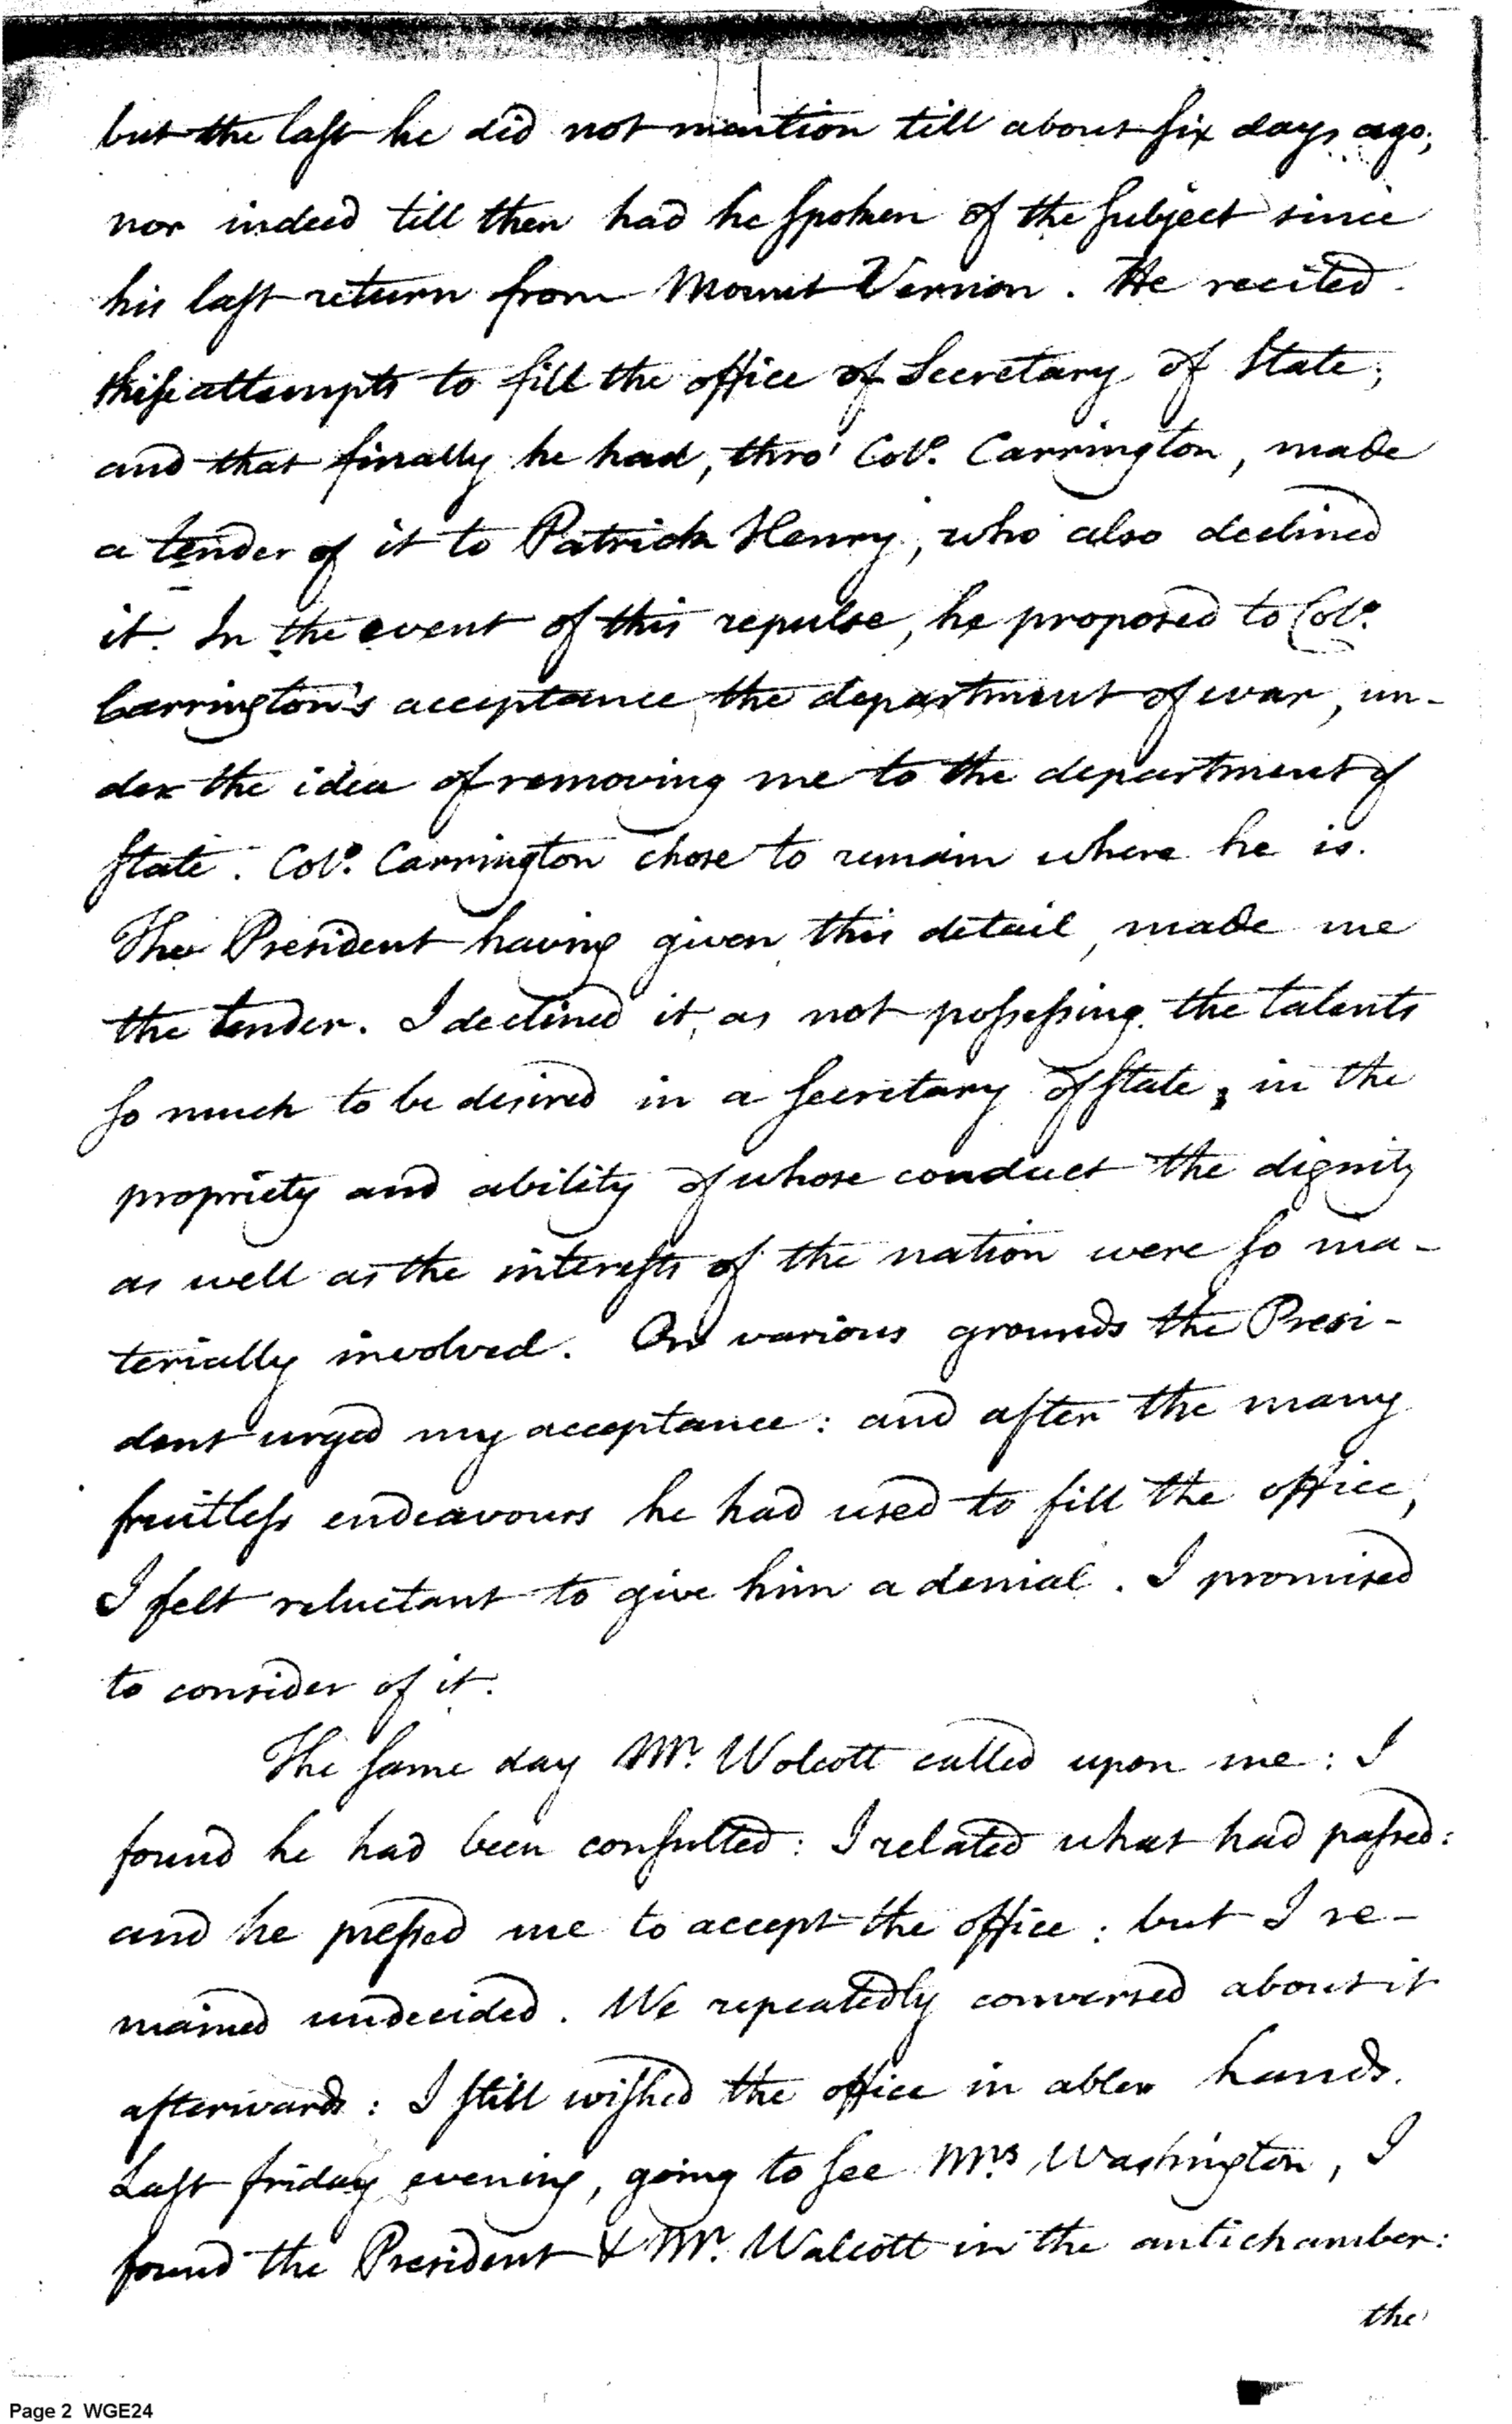 but the last he did not mention till about six days ago;
nor indeed till then had he spoken of the subject since
his last return from Mount Vernon. He recited
these attempts to fill the office of Secretary of State;
and that finally he had, thro' Colo. Carrington, made
a tender of it to Patrick Henry, who also declined
it. In the event of this repulse, he proposed to Colo.
Carrington's acceptance the department of war, un-
der the idea of removing me to the department of
State. Colo. Carrington chose to remain where he is.
The President having given this detail, made me
the tender. I declined it, as not possessing the talents
so much to be desired in a Secretary of State, in the
propriety and ability of whose conduct the dignity
as well as the interests of the nation were so ma-
terially involved. On various grounds the Presi-
dent urged my acceptance: and after the many
fruitless endeavours he had used to fill the office,
I felt reluctant to give him a denial. I promised
to consider of it.
The same day Mr. Wolcott called upon me: I
found he had been consulted: I related what had passed:
and he pressed me to accept the office: but I re-
mained undecided. We repeatedly conversed about it
afterwards: I still wished the office in abler hands.
Last friday evening, going to see Mrs. Washington, I
found the President & Mr. Walcott in the antichamber:
the
Page 2 WGE24